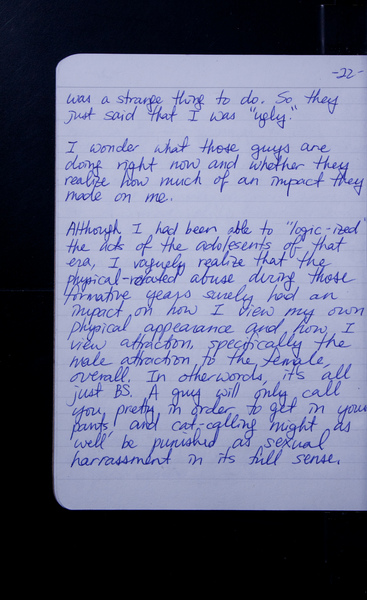 -22-
was a strange thing to do. So, they
just said that I was "ugly."
I wonder what those guys are
doing right now and whether they
realize how much of an impact they
made on me.
Although I had been able to "logic-ized"
the acts of the adolesents of that
era, I vaguely realize that the
physical-related abuse during those
formative years surely had an
impact on how I view my own
physical appearance and how I
view attraction, specifically the
male attraction to the female,
overall. In other words, it's all
just BS. A guy will only call
you pretty in order to get in your
pants, and cat-calling might as
well be punished as sexual
harrassment in its full sense.